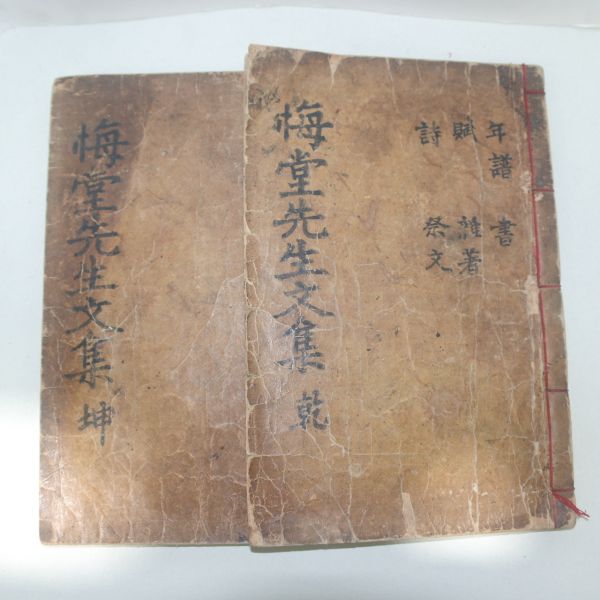 年譜 書
賦 雜著
詩 祭文
悔堂先生文集 乾
悔堂先生文集 坤